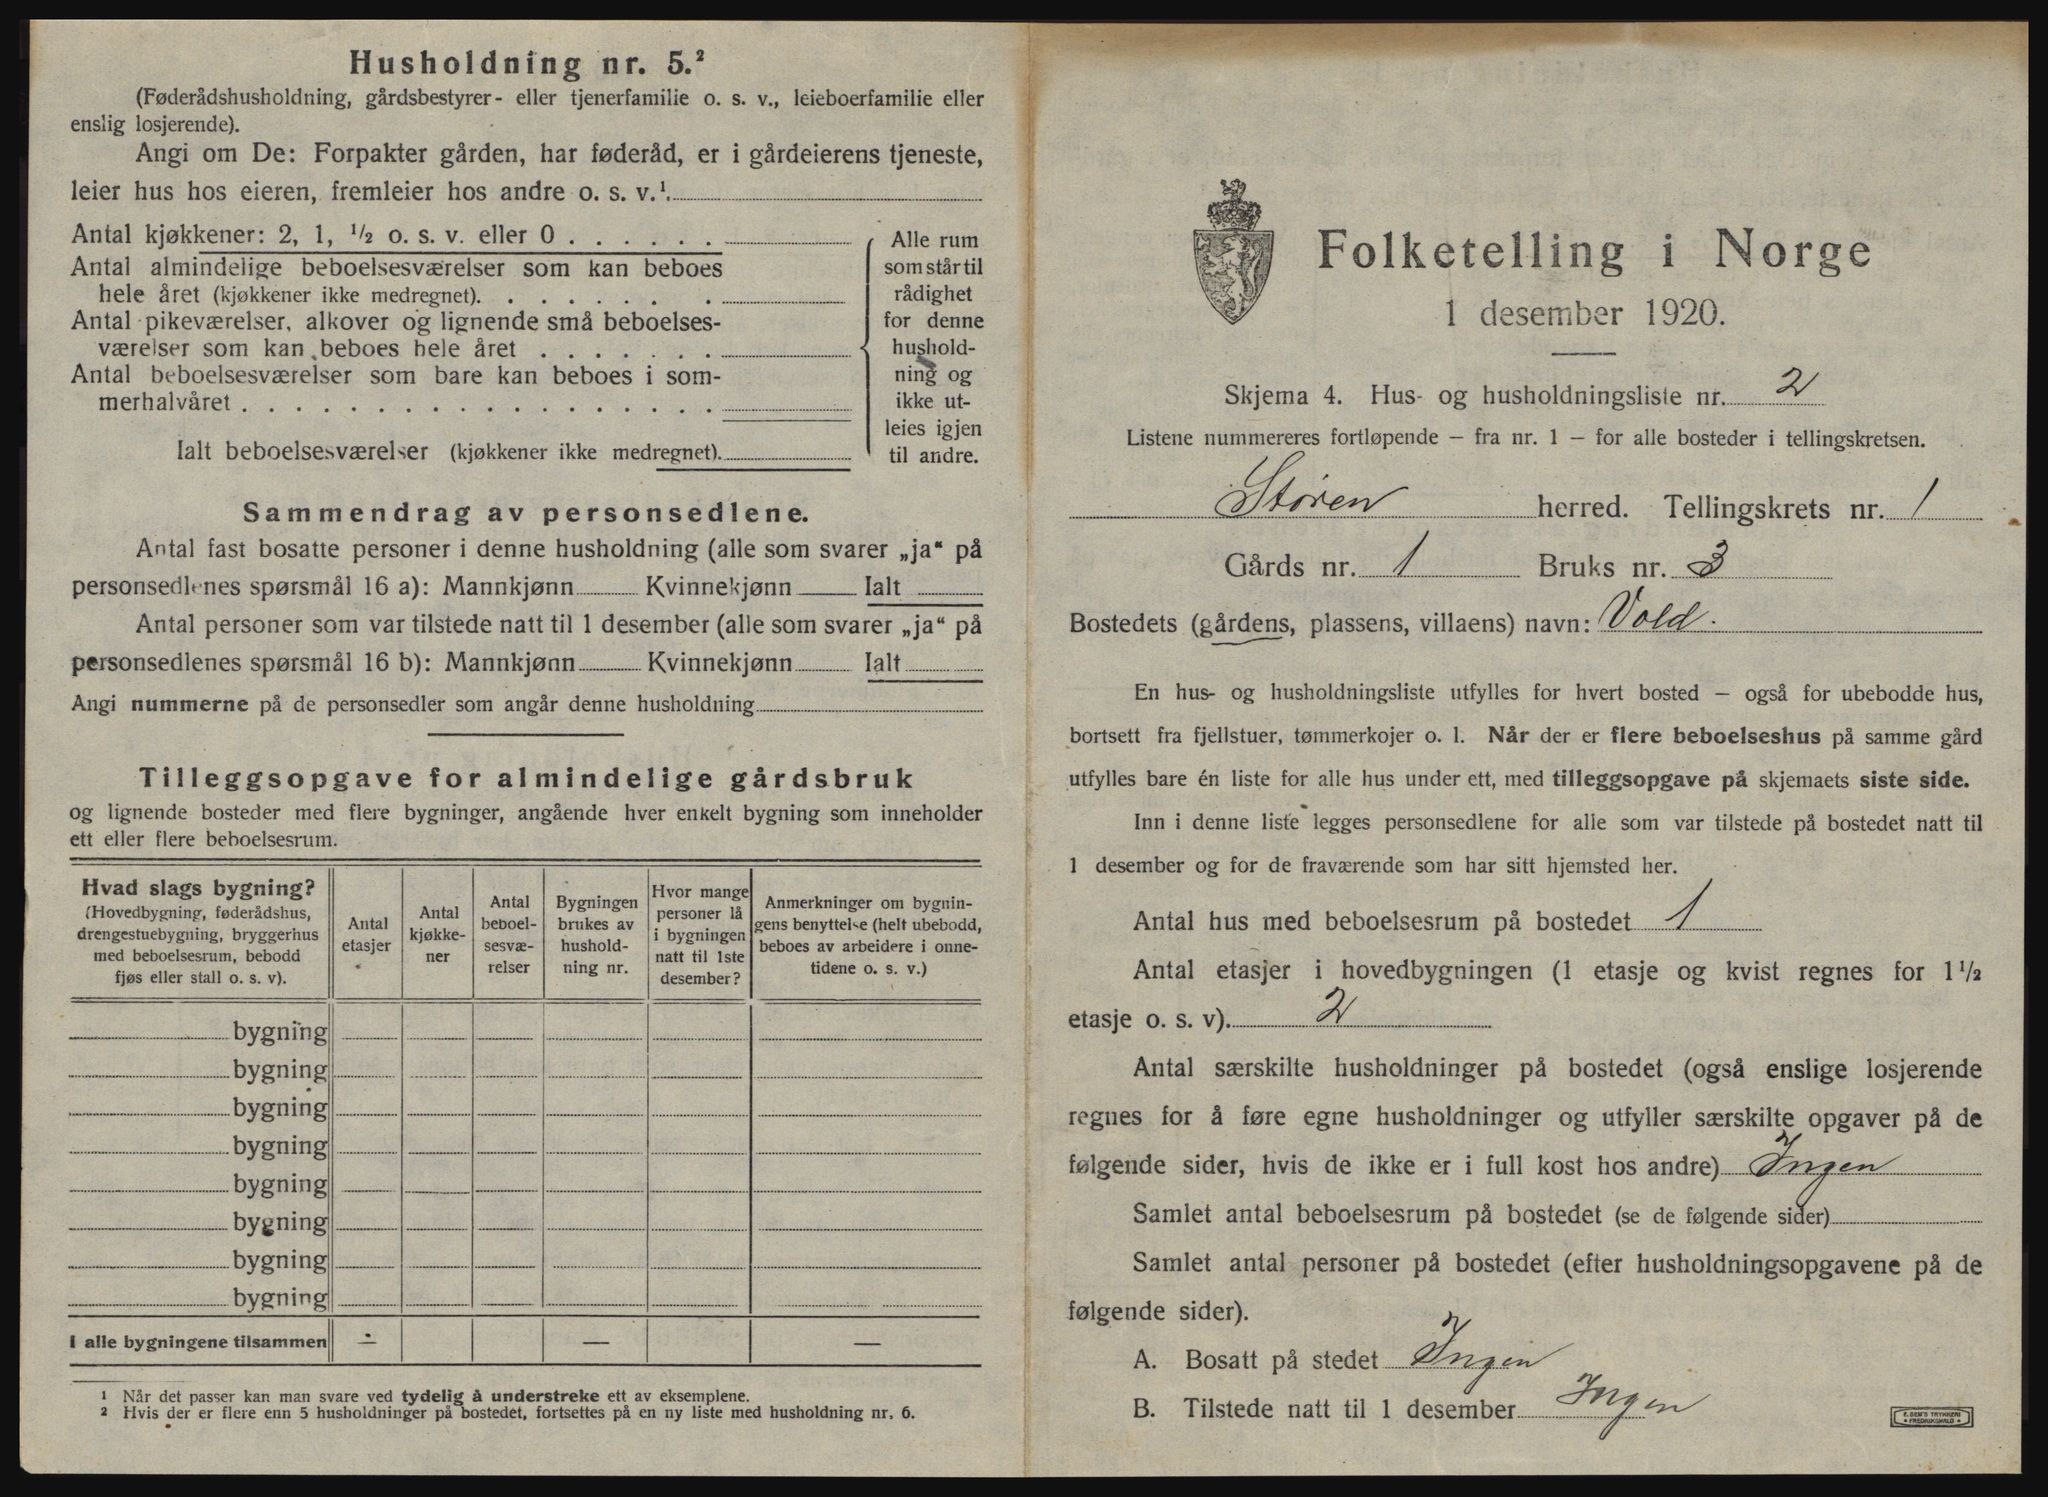 Husholdning nr. 5.²
(Føderådshusholdning, gårdsbestyrer- eller tjenerfamilie o. s. v., leieboerfamilie eller
enslig losjerende).
Angi om De: Forpakter gården, har føderåd, er i gårdeierens tjeneste,
leier hus hos eieren, fremleier hos andre o. s. v.¹.
Antal kjøkkener: 2, 1, ½ o. s. v. eller 0 . . . . . .
Antal almindelige beboelsesværelser som kan beboes
hele året (kjøkkener ikke medregnet). . . . . . . . .
Antal pikeværelser, alkover og lignende små beboelses-
værelser som kan beboes hele året . . . . . . .
Antal beboelsesværelser som bare kan beboes i som-
merhalvåret . . . . . . . . . . . . . . . . . .
Ialt beboelsesværelser (kjøkkener ikke medregnet).
Alle rum
som står til
rådighet
for denne
hushold-
ning og
ikke ut-
leies igjen
til andre.
Sammendrag av personsedlene.
Antal fast bosatte personer i denne husholdning (alle som svarer „ja“ på
personsedlenes spørsmål 16 a): Mannkjønn Kvinnekjønn Ialt
Antal personer som var tilstede natt til 1 desember (alle som svarer „ja“ på
personsedlenes spørsmål 16 b): Mannkjønn Kvinnekjønn Ialt
Angi nummerne på de personsedler som angår denne husholdning
Tilleggsopgave for almindelige gårdsbruk
og lignende bosteder med flere bygninger, angående hver enkelt bygning som inneholder
ett eller flere beboelsesrum.
Hvad slags bygning?
(Hovedbygning, føderådshus,
drengestuebygning, bryggerhus
med beboelsesrum, bebodd
fjøs eller stall o. s. v).
Antal
etasjer
Antal
kjøkke-
ner
Antal
beboel-
sesvæ-
relser
Bygningen
brukes av
hushold-
ning nr.
Hvor mange
personer lå
i bygningen
natt til 1ste
desember?
Anmerkninger om bygnin-
gens benyttelse (helt ubebodd,
beboes av arbeidere i onne-
tidene o. s. v.)
bygning
bygning
bygning
bygning
bygning
bygning
bygning
bygning
I alle bygningene tilsammen — — —
¹ Når det passer kan man svare ved tydelig å understreke ett av eksemplene.
² Hvis der er flere enn 5 husholdninger på bostedet, fortsettes på en ny liste med husholdning nr. 6.
Folketelling i Norge
1 desember 1920.
Skjema 4. Hus- og husholdningsliste nr. 2
Listene nummereres fortløpende — fra nr. 1 — for alle bosteder i tellingskretsen.
Støren herred. Tellingskrets nr. 1
Gårds nr. 1 Bruks nr. 3
Bostedets (gårdens, plassens, villaens) navn: Vold.
En hus- og husholdningsliste utfylles for hvert bosted — også for ubebodde hus,
bortsett fra fjellstuer, tømmerkojer o. l. Når der er flere beboelseshus på samme gård
utfylles bare én liste for alle hus under ett, med tilleggsopgave på skjemaets siste side.
Inn i denne liste legges personsedlene for alle som var tilstede på bostedet natt til
1 desember og for de fraværende som har sitt hjemsted her.
Antal hus med beboelsesrum på bostedet 1
Antal etasjer i hovedbygningen (1 etasje og kvist regnes for 1½
etasje o. s. v). 2
Antal særskilte husholdninger på bostedet (også enslige losjerende
regnes for å føre egne husholdninger og utfyller særskilte opgaver på de
følgende sider, hvis de ikke er i full kost hos andre) Ingen
Samlet antal beboelsesrum på bostedet (se de følgende sider)
Samlet antal personer på bostedet (efter husholdningsopgavene på de
følgende sider).
A. Bosatt på stedet Ingen
B. Tilstede natt til 1 desember Ingen
E. SEM'S TRYKKERI
FREDRIKSHALD